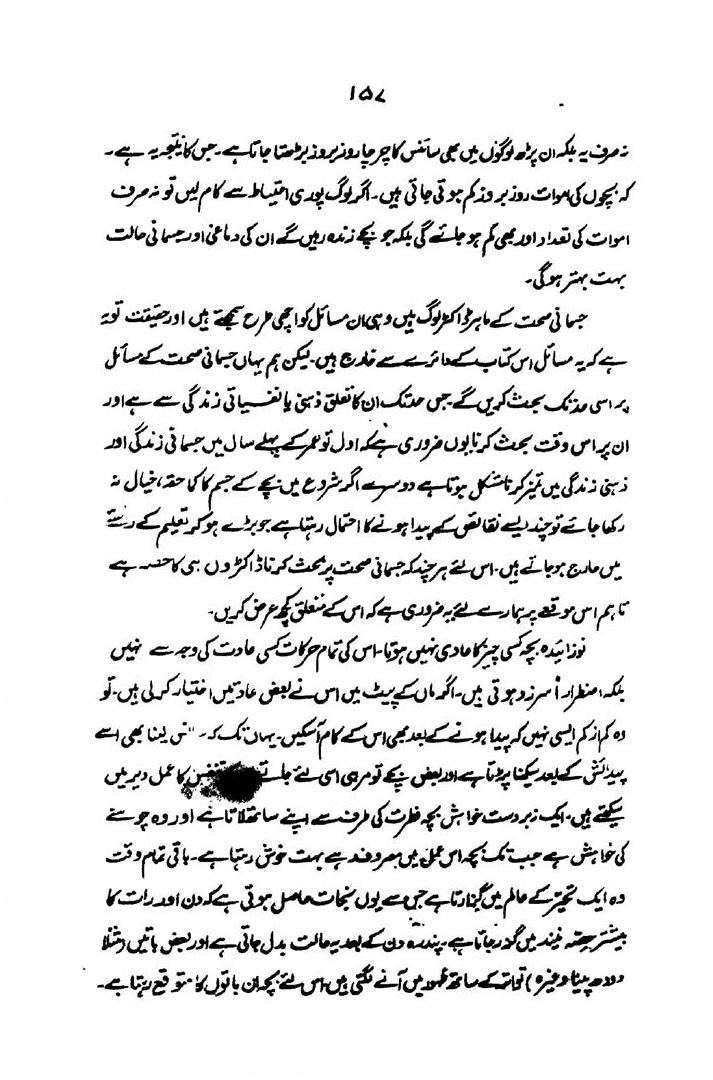 ۱۵۷
نہ صرف یہ بلکہ ان پڑھ لوگوں میں بھی سائنس کا چرچا روز بروز بڑھتا جاتا ہے۔ جس کا نتیجہ یہ ہے۔
کہ بچوں کی اموات روز بروز کم ہوتی جاتی ہیں۔ اگر لوگ پوری احتیاط سے کام لیں تو نہ صرف
اموات کی تعداد اور بھی کم ہو جائے گی بلکہ جو بچے زندہ رہیں گے ان کی دماغی اور جسمانی حالت
بہت بہتر ہوگی۔
جسمانی صحت کے ماہر ڈاکٹر لوگ ہیں وہی ان مسائل کو اچھی طرح سمجھتے ہیں اور حقیقت تو یہ
ہے کہ یہ مسائل اس کتاب کے دائرے سے خارج ہیں۔ لیکن ہم یہاں جسمانی صحت کے مسائل
پر اسی حد تک بحث کریں گے جس حد تک ان کا تعلق ذہنی یا نفسیاتی زندگی سے ہے اور
ان پر اس وقت بحث کرنا یوں ضروری ہے کہ اول تو عمر کے پہلے سال میں جسمانی زندگی اور
ذہنی زندگی میں تمیز کرنا مشکل ہوتا ہے دوسرے اگر شروع میں بچے کے جسم کا کما حقہ، خیال نہ
رکھا جائے تو چند ایسے نقائص کے پیدا ہونے کا احتمال رہتا ہے جو بڑے ہو کر تعلیم کے رستے
میں حارج ہو جاتے ہیں۔ اس لئے ہر چند کہ جسمانی صحت پر بحث کرنا ڈاکٹروں ہی کا حصہ ہے
تاہم اس موقعے پر ہمارے لئے یہ ضروری ہے کہ اس کے متعلق کچھ عرض کریں۔
نوزائیدہ بچہ کسی چیز کا عادی نہیں ہوتا۔ اس کی تمام حرکات کسی عادت کی وجہ سے نہیں
بلکہ اضطراراً سرزد ہوتی ہیں۔ اگر ماں کے پیٹ میں اس نے بعض عادتیں اختیار کر لی ہیں۔ تو
وہ کم از کم ایسی نہیں کہ پیدا ہونے کے بعد بھی اس کے کام آسکیں۔ یہاں تک کہ لینا بھی اسے
پیدائش کے بعد سیکھنا پڑتا ہے اور بعض بچے تو مر ہی اسی لئے جاتے کا عمل دیر میں
سیکھتے ہیں۔ ایک زبردست خواہش بچہ فطرت کی طرف سے اپنے ساتھ لاتا ہے اور وہ چوسنے
کی خواہش ہے جب تک بچہ اس عمل میں مصروف ہے بہت خوش رہتا ہے۔ باقی تمام وقت
وہ ایک تحیّر کے عالم میں گزارتا ہے جس سے یوں نجات حاصل ہوتی ہے کہ دن اور رات کا
بیشتر حصہ نیند میں گذر جاتا ہے۔ پندرہ دن کے بعد یہ حالت بدل جاتی ہے اور بعض باتیں (مثلاً
دودھ پینا وغیرہ) تواتر کے ساتھ ظہور میں آنے لگتی ہیں اس لئے بچہ ان باتوں کا متوقع رہتا ہے۔